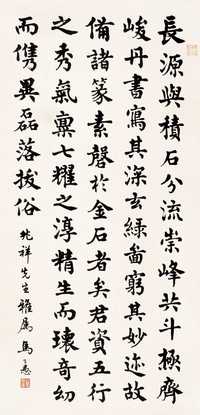 長源與積石分流崇峰共斗極齊
峻丹書寫其深玄綠啚窮其妙迹故
備諸篆素磬於金石者矣君資五行
之秀氣稟七耀之淳精生而瓌奇幼
而儁異磊落拔俗
兆祥先生雅屬 馬